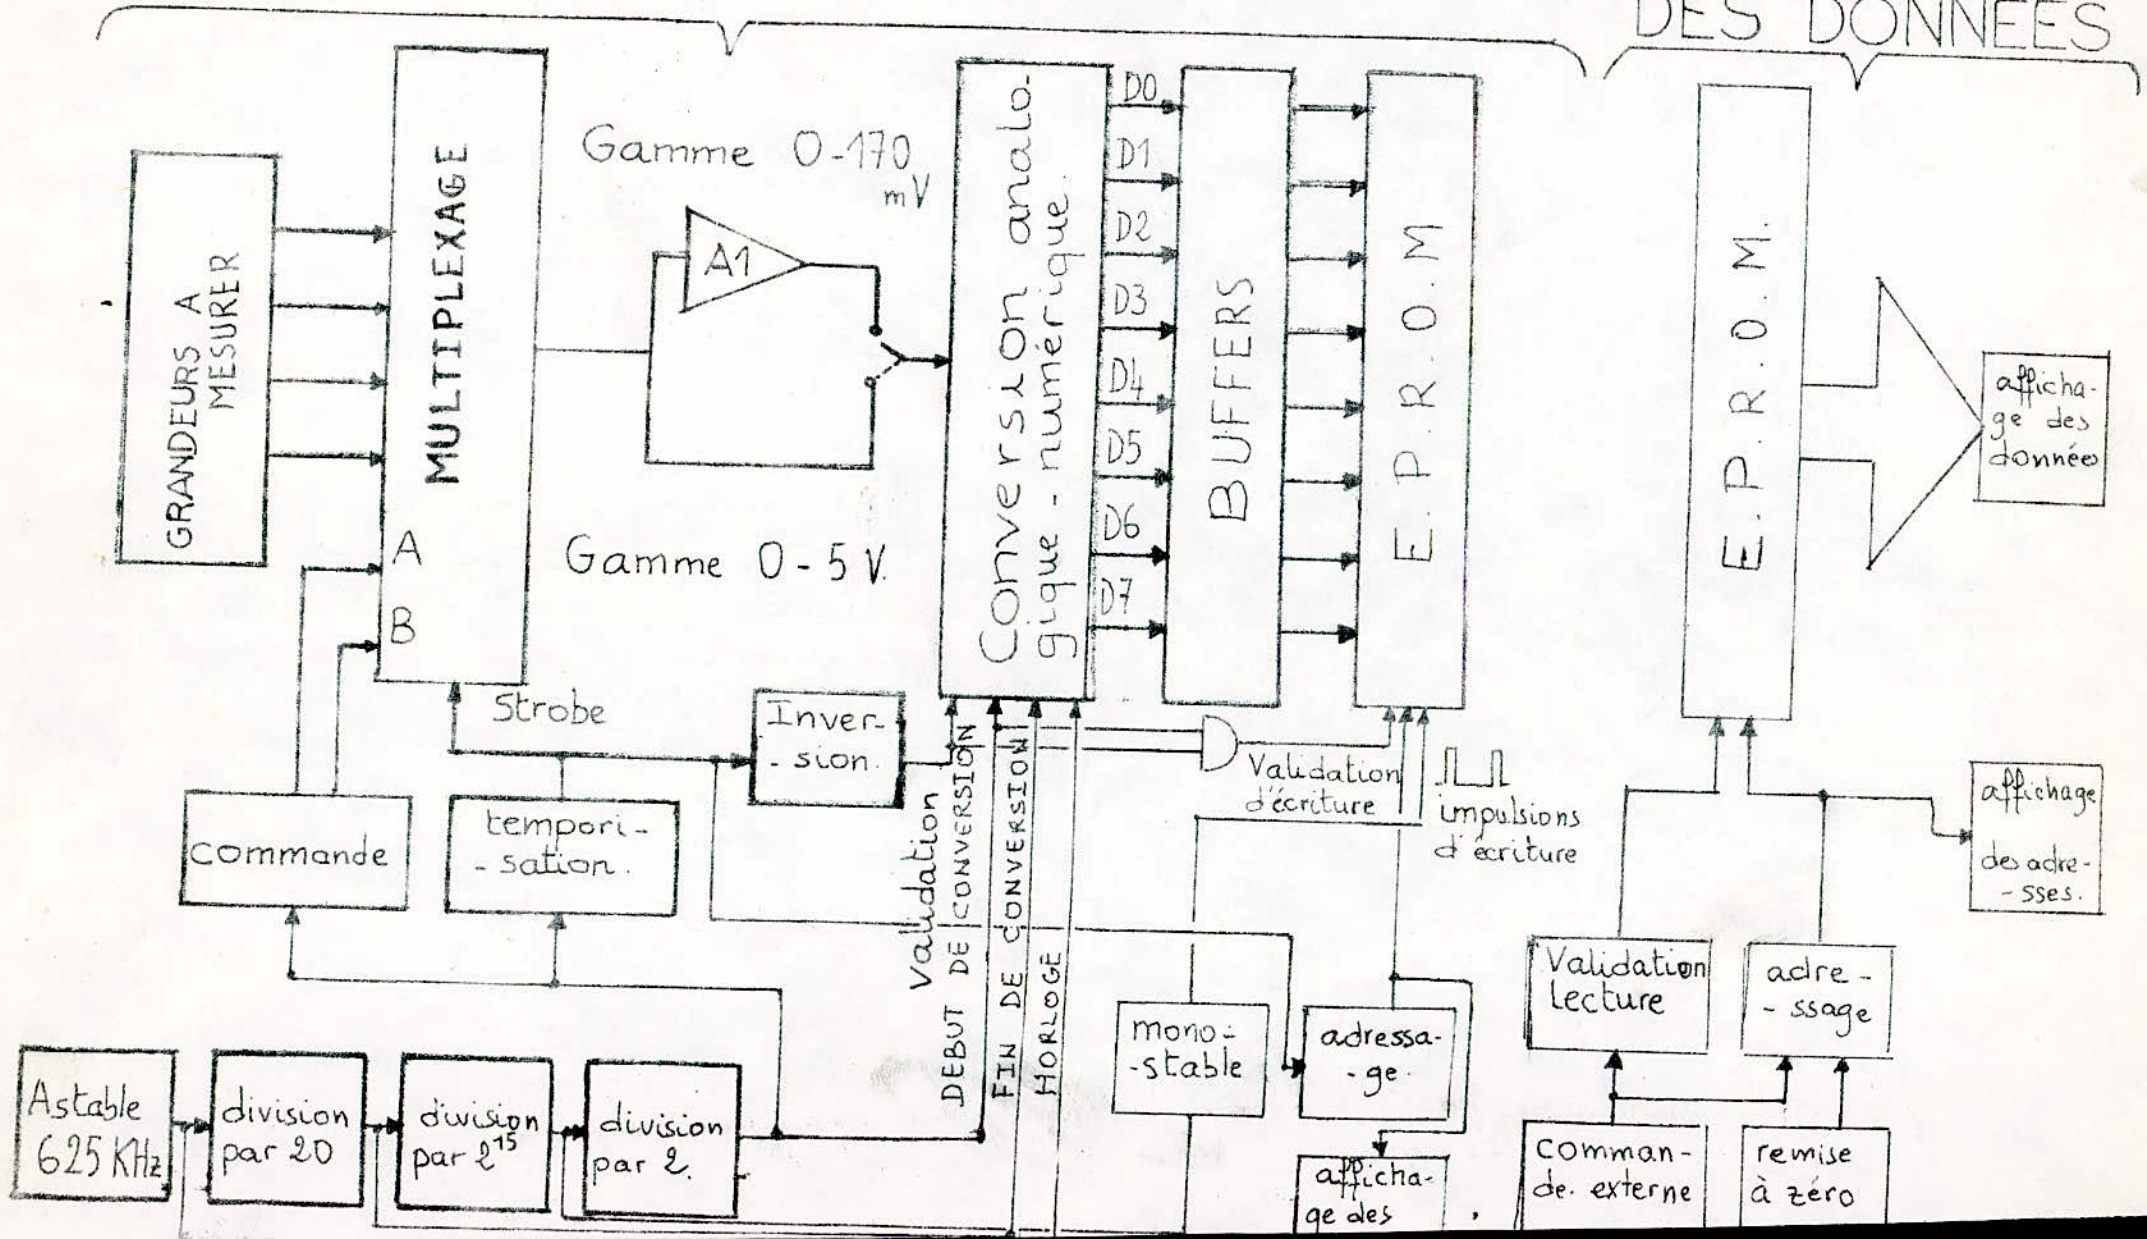 DES DONNÉES
GRANDEURS A
MESURER
MULTIPLEXAGE
A
B
Gamme 0-170
mV
A1
Gamme 0-5 V.
Conversion analo-
gique-numérique.
D0
D1
D2
D3
D4
D5
D6
D7
BUFFERS
E.P.R.O.M
E.P.R.O.M.
afficha-
ge des
données
Strobe
Inver-
-sion.
commande
tempori-
-sation.
Validation
DEBUT DE CONVERSION
FIN DE CONVERSION
HORLOGE
Validation
d'écriture
impulsions
d'écriture
affichage
des adre-
-sses.
Validation
lecture
adre-
-ssage
mono-
-stable
adressa-
-ge.
Astable
625 KHz
division
par 20
division
par 2¹⁵
division
par 2.
afficha-
ge des
comman-
de. externe
remise
à zéro